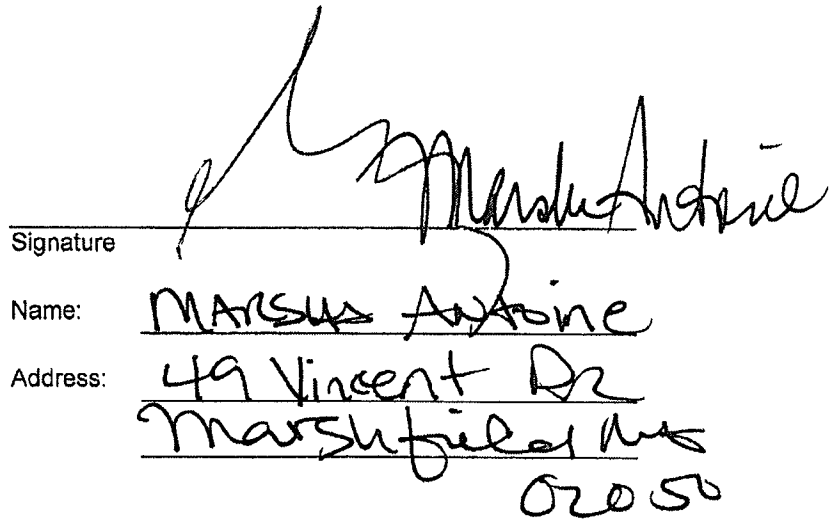 Marsha Antoine
Signature
Name: MARSHA ANTOINE
Address: 49 Vincent Dr
Marshfield MA
02050